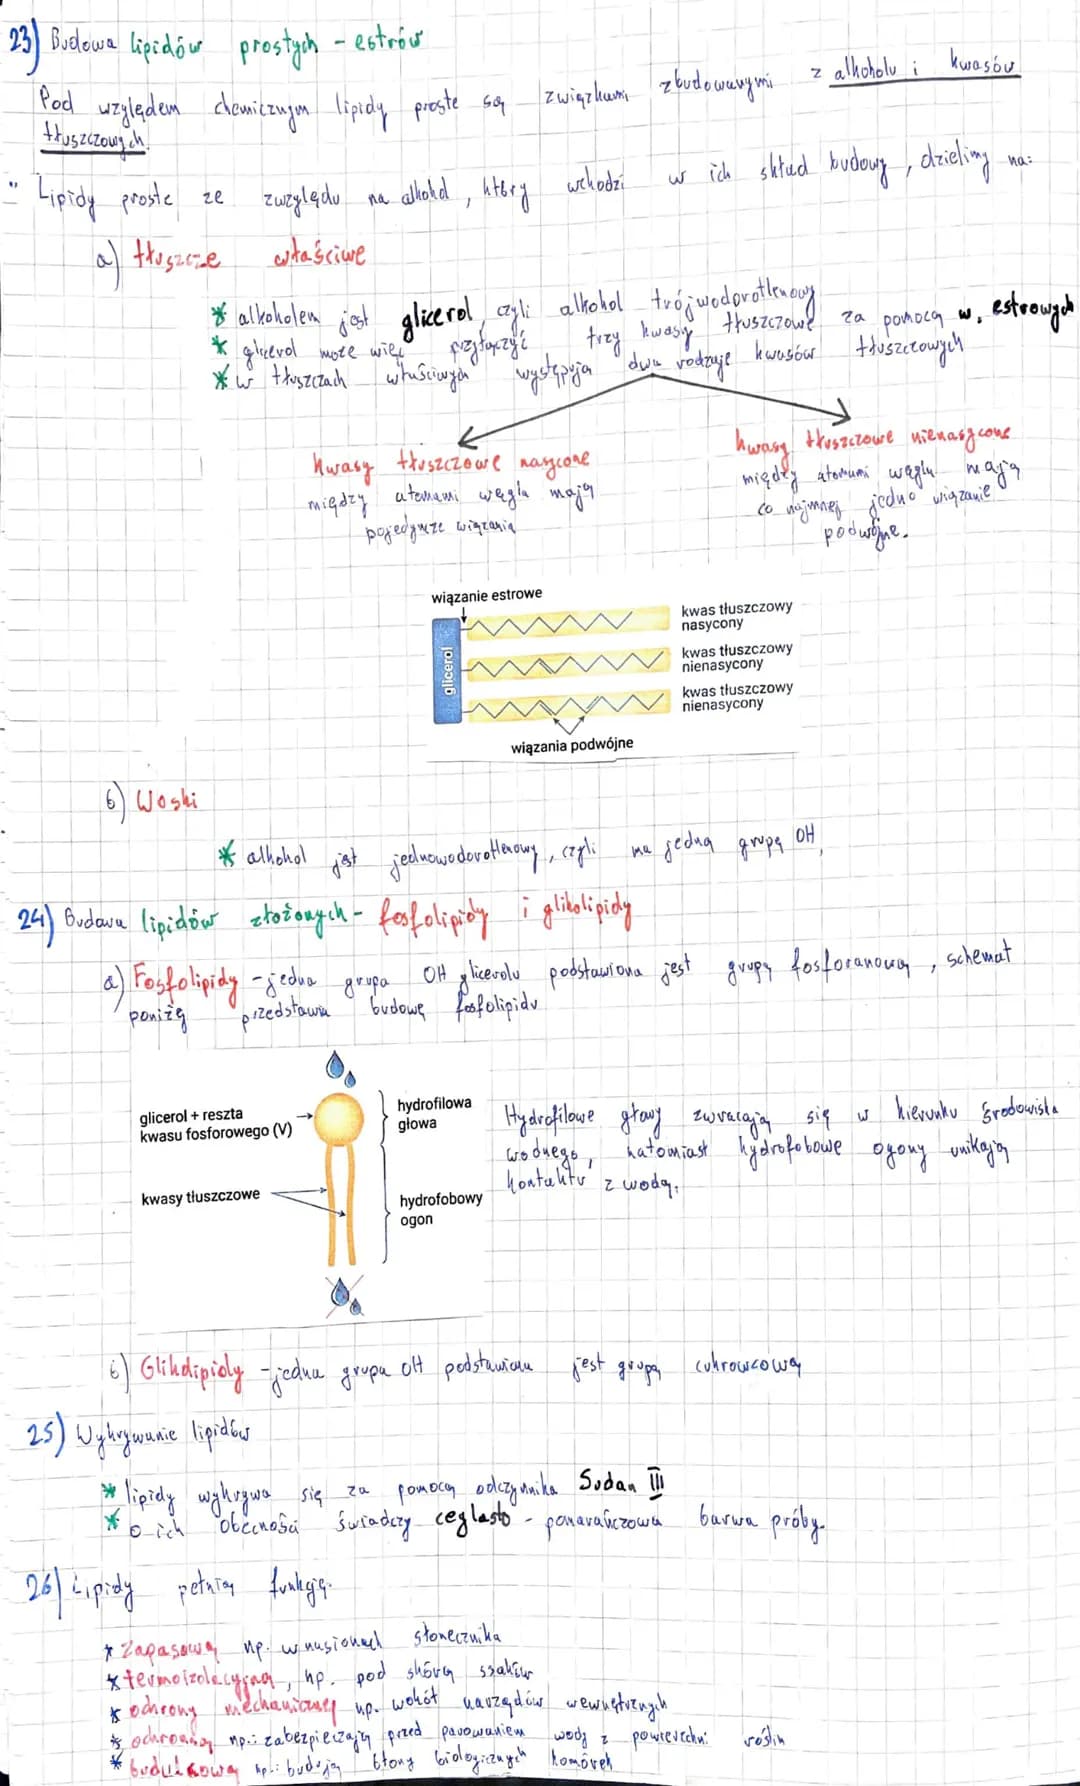 23) Budowa lipidów prostych - estrów
Pod względem chemicznym lipidy proste są związkami zbudowanymi z alkoholu i kwasów
tłuszczowych.
" Lipidy proste ze zwzględu na alkohol, który wchodzi w ich skład budowy, dzielimy na:
a) tłuszcze właściwe
* alkoholem jest glicerol, czyli alkohol trójwodorotlenowy
* glicerol może więc przyłączyć trzy kwasy tłuszczowe za pomocą w. estrowych
* w tłuszczach właściwych występują dwa rodzaje kwasów tłuszczowych
kwasy tłuszczowe nasycone
między atomami węgla mają
pojedyncze wiązania
kwasy tłuszczowe nienasycone
między atomami węgla mają
co najmniej jedno wiązanie
podwójne.
wiązanie estrowe
glicerol
kwas tłuszczowy
nasycony
kwas tłuszczowy
nienasycony
kwas tłuszczowy
nienasycony
wiązania podwójne
b) Woski
* alkohol jest jednowodorotlenowy, czyli ma jedną grupę OH,
24) Budowa lipidów złożonych - fosfolipidy i glikolipidy
a) Fosfolipidy - jedna grupa OH glicerolu podstawiona jest grupą fosforanową, schemat
poniżej przedstawia budowę fosfolipidu
glicerol + reszta
kwasu fosforowego (V)
kwasy tłuszczowe
hydrofilowa
głowa
hydrofobowy
ogon
Hydrofilowe głowy zwracają się w kierunku środowiska
wodnego, natomiast hydrofobowe ogony unikają
kontaktu z wodą.
b) Glikolipidy - jedna grupa OH podstawiona jest grupą cukrowcową
25) Wykrywanie lipidów
* lipidy wykrywa się za pomocą odczynnika Sudan III
* o ich obecności świadczy ceglasto - pomarańczowa barwa próby.
26) Lipidy pełnią funkcję:
* zapasową np. w nasionach słonecznika
* termoizolacyjną, np. pod skórą ssaków
* ochrony mechanicznej np. wokół narządów wewnętrznych
* ochronną np.: zabezpieczają przed parowaniem wody z powierzchni roślin
* budulcową np.: budują błony biologicznych komórek